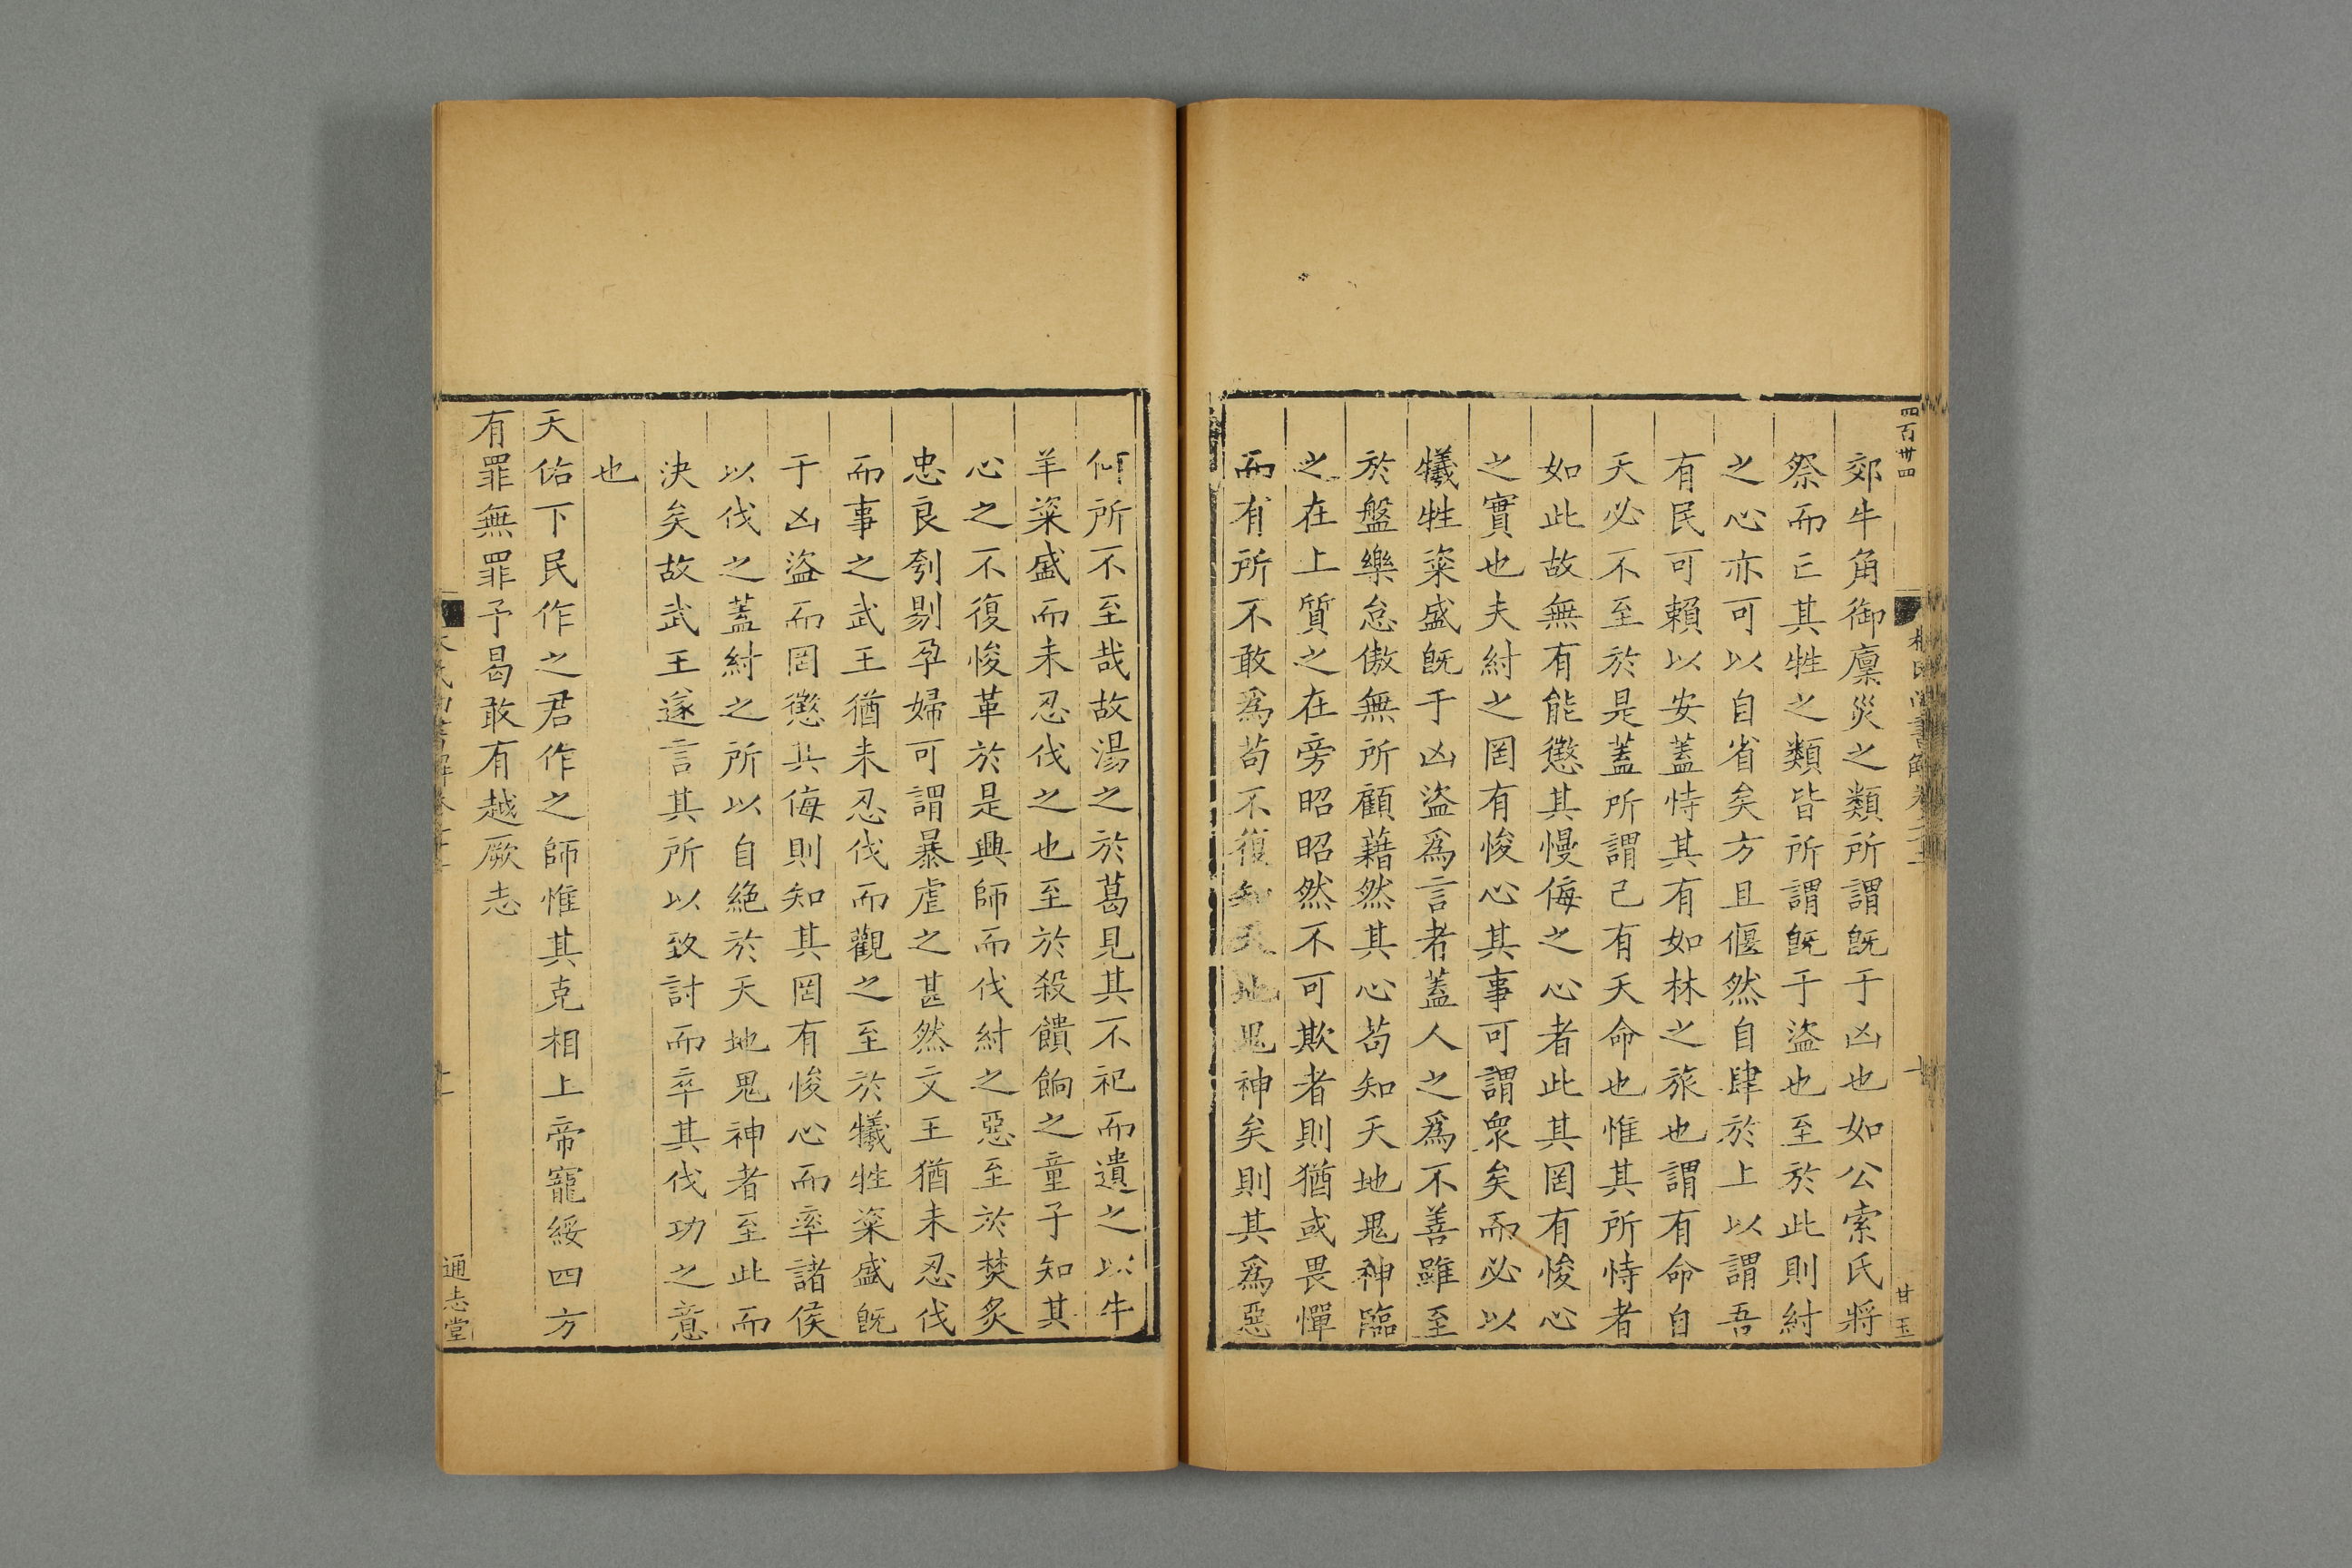 四百卅四
郊牛角御廩災之類所謂旣于凶也如公索氏將
祭而亡其牲之類皆所謂旣于盜也至於此則紂
之心亦可以自省矣方且偃然自肆於上以謂吾
有民可賴以安蓋恃其有如林之旅也謂有命自
天必不至於是蓋所謂己有天命也惟其所恃者
如此故無有能懲其慢侮之心者此其罔有悛心
之實也夫紂之罔有悛心其事可謂衆矣而必以
犧牲粢盛旣于凶盜爲言者蓋人之爲不善雖至
於盤樂怠傲無所顧藉然其心苟知天地鬼神臨
之在上質之在旁昭昭然不可欺者則猶或畏憚
而有所不敢爲苟不復知天地鬼神矣則其爲惡
甘玉
何所不至哉故湯之於葛見其不祀而遺之以牛
羊粢盛而未忍伐之也至於殺饋餉之童子知其
心之不復悛革於是興師而伐紂之惡至於焚炙
忠良刳剔孕婦可謂暴虐之甚然文王猶未忍伐
而事之武王猶未忍伐而觀之至於犧牲粢盛旣
于凶盜而罔懲其侮則知其罔有悛心而率諸侯
以伐之蓋紂之所以自絶於天地鬼神者至此而
決矣故武王遂言其所以致討而卒其伐功之意
也
天佑下民作之君作之師惟其克相上帝寵綏四方
有罪無罪予曷敢有越厥志
通志堂